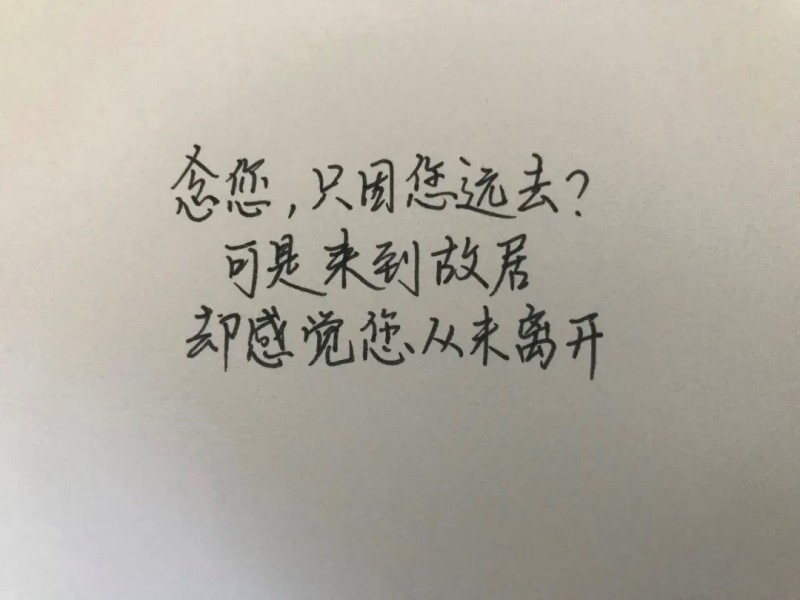 念您,只因您远去?
可是来到故居
却感觉您从未离开